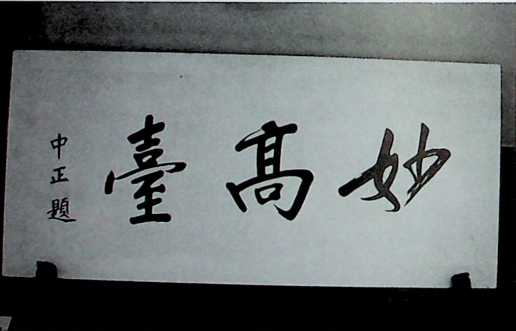 妙高臺
中正題